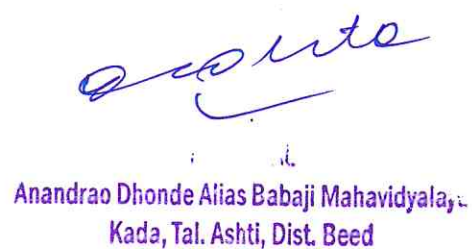 Anandrao Dhonde Alias Babaji Mahavidyalaya
Kada, Tal. Ashti, Dist. Beed